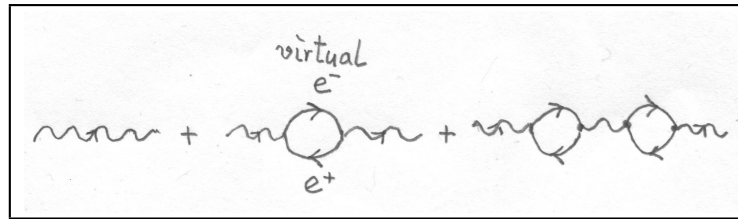 virtual
e⁻
+ +
e⁺